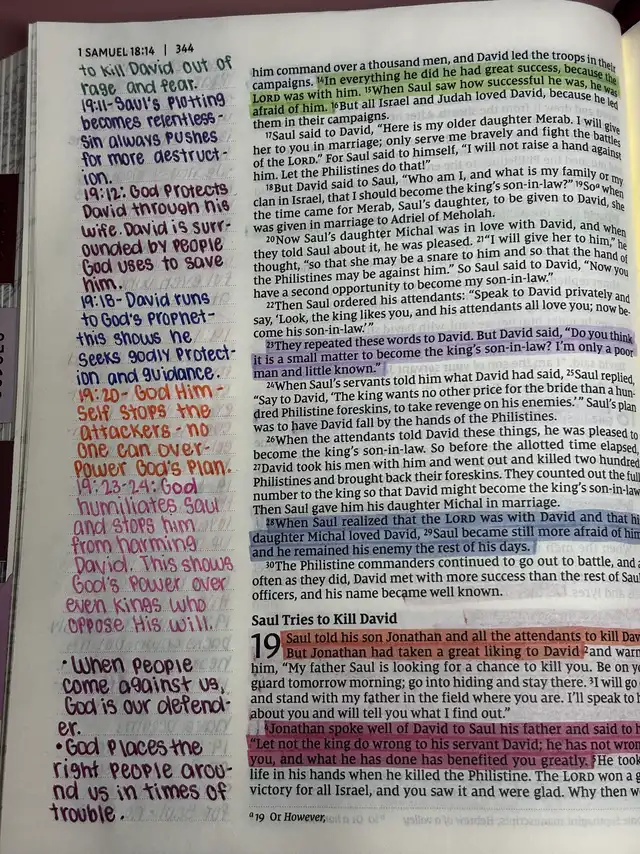 1 SAMUEL 18:14 | 344
to kill David out of
rage and fear.
19:11-Saul's Plotting
becomes relentless-
Sin always pushes
for more destruct-
ion.
19:12: God Protects
David through his
wife. David is surr-
ounded by people
God uses to save
him.
19:18-David runs
to God's Prophet-
this shows he
seeks godly Protect-
ion and guidance.
19:20-God Him-
self stops the
attackers - no
one can over-
Power God's Plan.
19:23-24: God
humiliates Saul
and stops him
from harming
David. This shows
God's Power over
even Kings who
oppose His will.
• When people
come against us,
God is our defend-
er.
• God places the
right people arou-
nd us in times of
trouble.
him command over a thousand men, and David led the troops in their
campaigns. 14In everything he did he had great success, because the
LORD was with him. 15When Saul saw how successful he was, he was
afraid of him. 16But all Israel and Judah loved David, because he led
them in their campaigns.
17Saul said to David, “Here is my older daughter Merab. I will give
her to you in marriage; only serve me bravely and fight the battles
of the LORD.” For Saul said to himself, “I will not raise a hand against
him. Let the Philistines do that!”
18But David said to Saul, “Who am I, and what is my family or my
clan in Israel, that I should become the king’s son-in-law?” 19Soa when
the time came for Merab, Saul’s daughter, to be given to David, she
was given in marriage to Adriel of Meholah.
20Now Saul’s daughter Michal was in love with David, and when
they told Saul about it, he was pleased. 21“I will give her to him,” he
thought, “so that she may be a snare to him and so that the hand of
the Philistines may be against him.” So Saul said to David, “Now you
have a second opportunity to become my son-in-law.”
22Then Saul ordered his attendants: “Speak to David privately and
say, ‘Look, the king likes you, and his attendants all love you; now be-
come his son-in-law.’”
23They repeated these words to David. But David said, “Do you think
it is a small matter to become the king’s son-in-law? I’m only a poor
man and little known.”
24When Saul’s servants told him what David had said, 25Saul replied,
“Say to David, ‘The king wants no other price for the bride than a hun-
dred Philistine foreskins, to take revenge on his enemies.’” Saul’s plan
was to have David fall by the hands of the Philistines.
26When the attendants told David these things, he was pleased to
become the king’s son-in-law. So before the allotted time elapsed,
27David took his men with him and went out and killed two hundred
Philistines and brought back their foreskins. They counted out the full
number to the king so that David might become the king’s son-in-law.
Then Saul gave him his daughter Michal in marriage.
28When Saul realized that the LORD was with David and that his
daughter Michal loved David, 29Saul became still more afraid of him,
and he remained his enemy the rest of his days.
30The Philistine commanders continued to go out to battle, and as
often as they did, David met with more success than the rest of Saul
officers, and his name became well known.
Saul Tries to Kill David
19 Saul told his son Jonathan and all the attendants to kill Dav
But Jonathan had taken a great liking to David 2and warn
him, “My father Saul is looking for a chance to kill you. Be on yo
guard tomorrow morning; go into hiding and stay there. 3I will go
and stand with my father in the field where you are. I’ll speak to h
about you and will tell you what I find out.”
4Jonathan spoke well of David to Saul his father and said to h
“Let not the king do wrong to his servant David; he has not wron
you, and what he has done has benefited you greatly. 5He took
life in his hands when he killed the Philistine. The LORD won a g
victory for all Israel, and you saw it and were glad. Why then w
a 19 Or However,